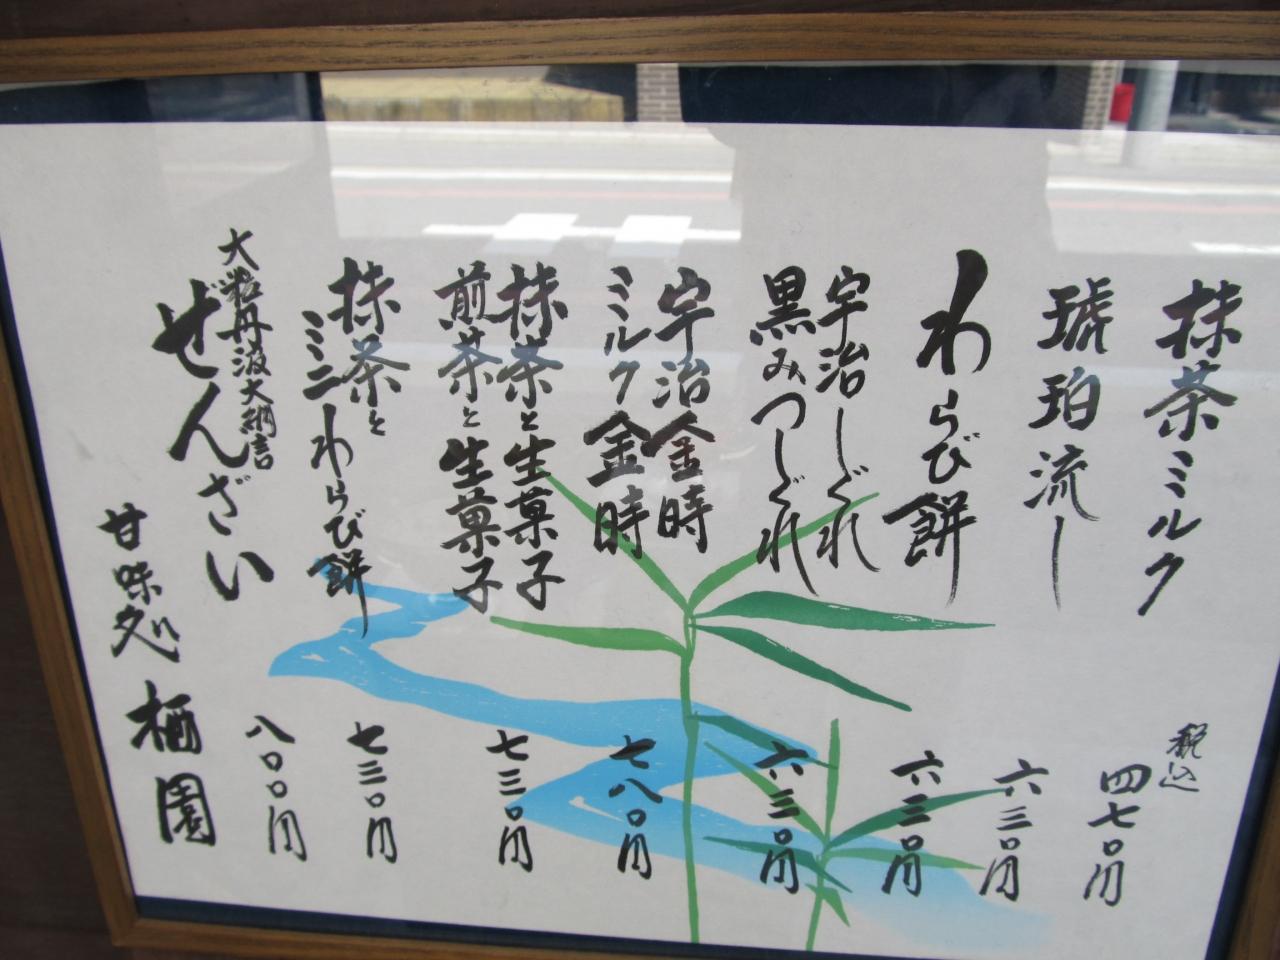 抹茶ミルク
税込
四七〇円
琥珀流し
六三〇円
わらび餅
六三〇円
宇治しぐれ
黒みつしぐれ
六三〇円
宇治金時
ミルク金時
七八〇円
抹茶と生菓子
煎茶と生菓子
七三〇円
抹茶と
ミニわらび餅
七三〇円
大粒丹波大納言
ぜんざい
八〇〇円
甘味処
栖園